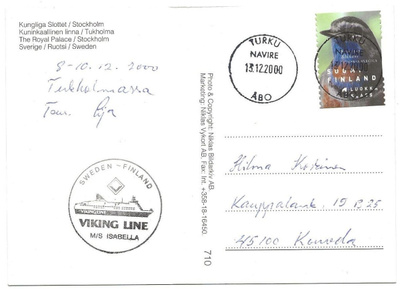 Kungliga Slottet / Stockholm
Kuninkaallinen linna / Tukholma
The Royal Palace / Stockholm
Sverige / Ruotsi / Sweden
8-10.12.2000
Tukholmassa
SWEDEN - FINLAND
VIKING LINE
M/S ISABELLA
Photo & Copyright: Niklas Bildarkiv AB.
Marketing: Niklas Vykort AB. Fax: Int. +358-18-16450.
710
TURKU
NAVIRE
13.12.2000
ÅBO
SUOMI
FINLAND
LUOKKA
KLASS
Hilma
45100 Kouvola